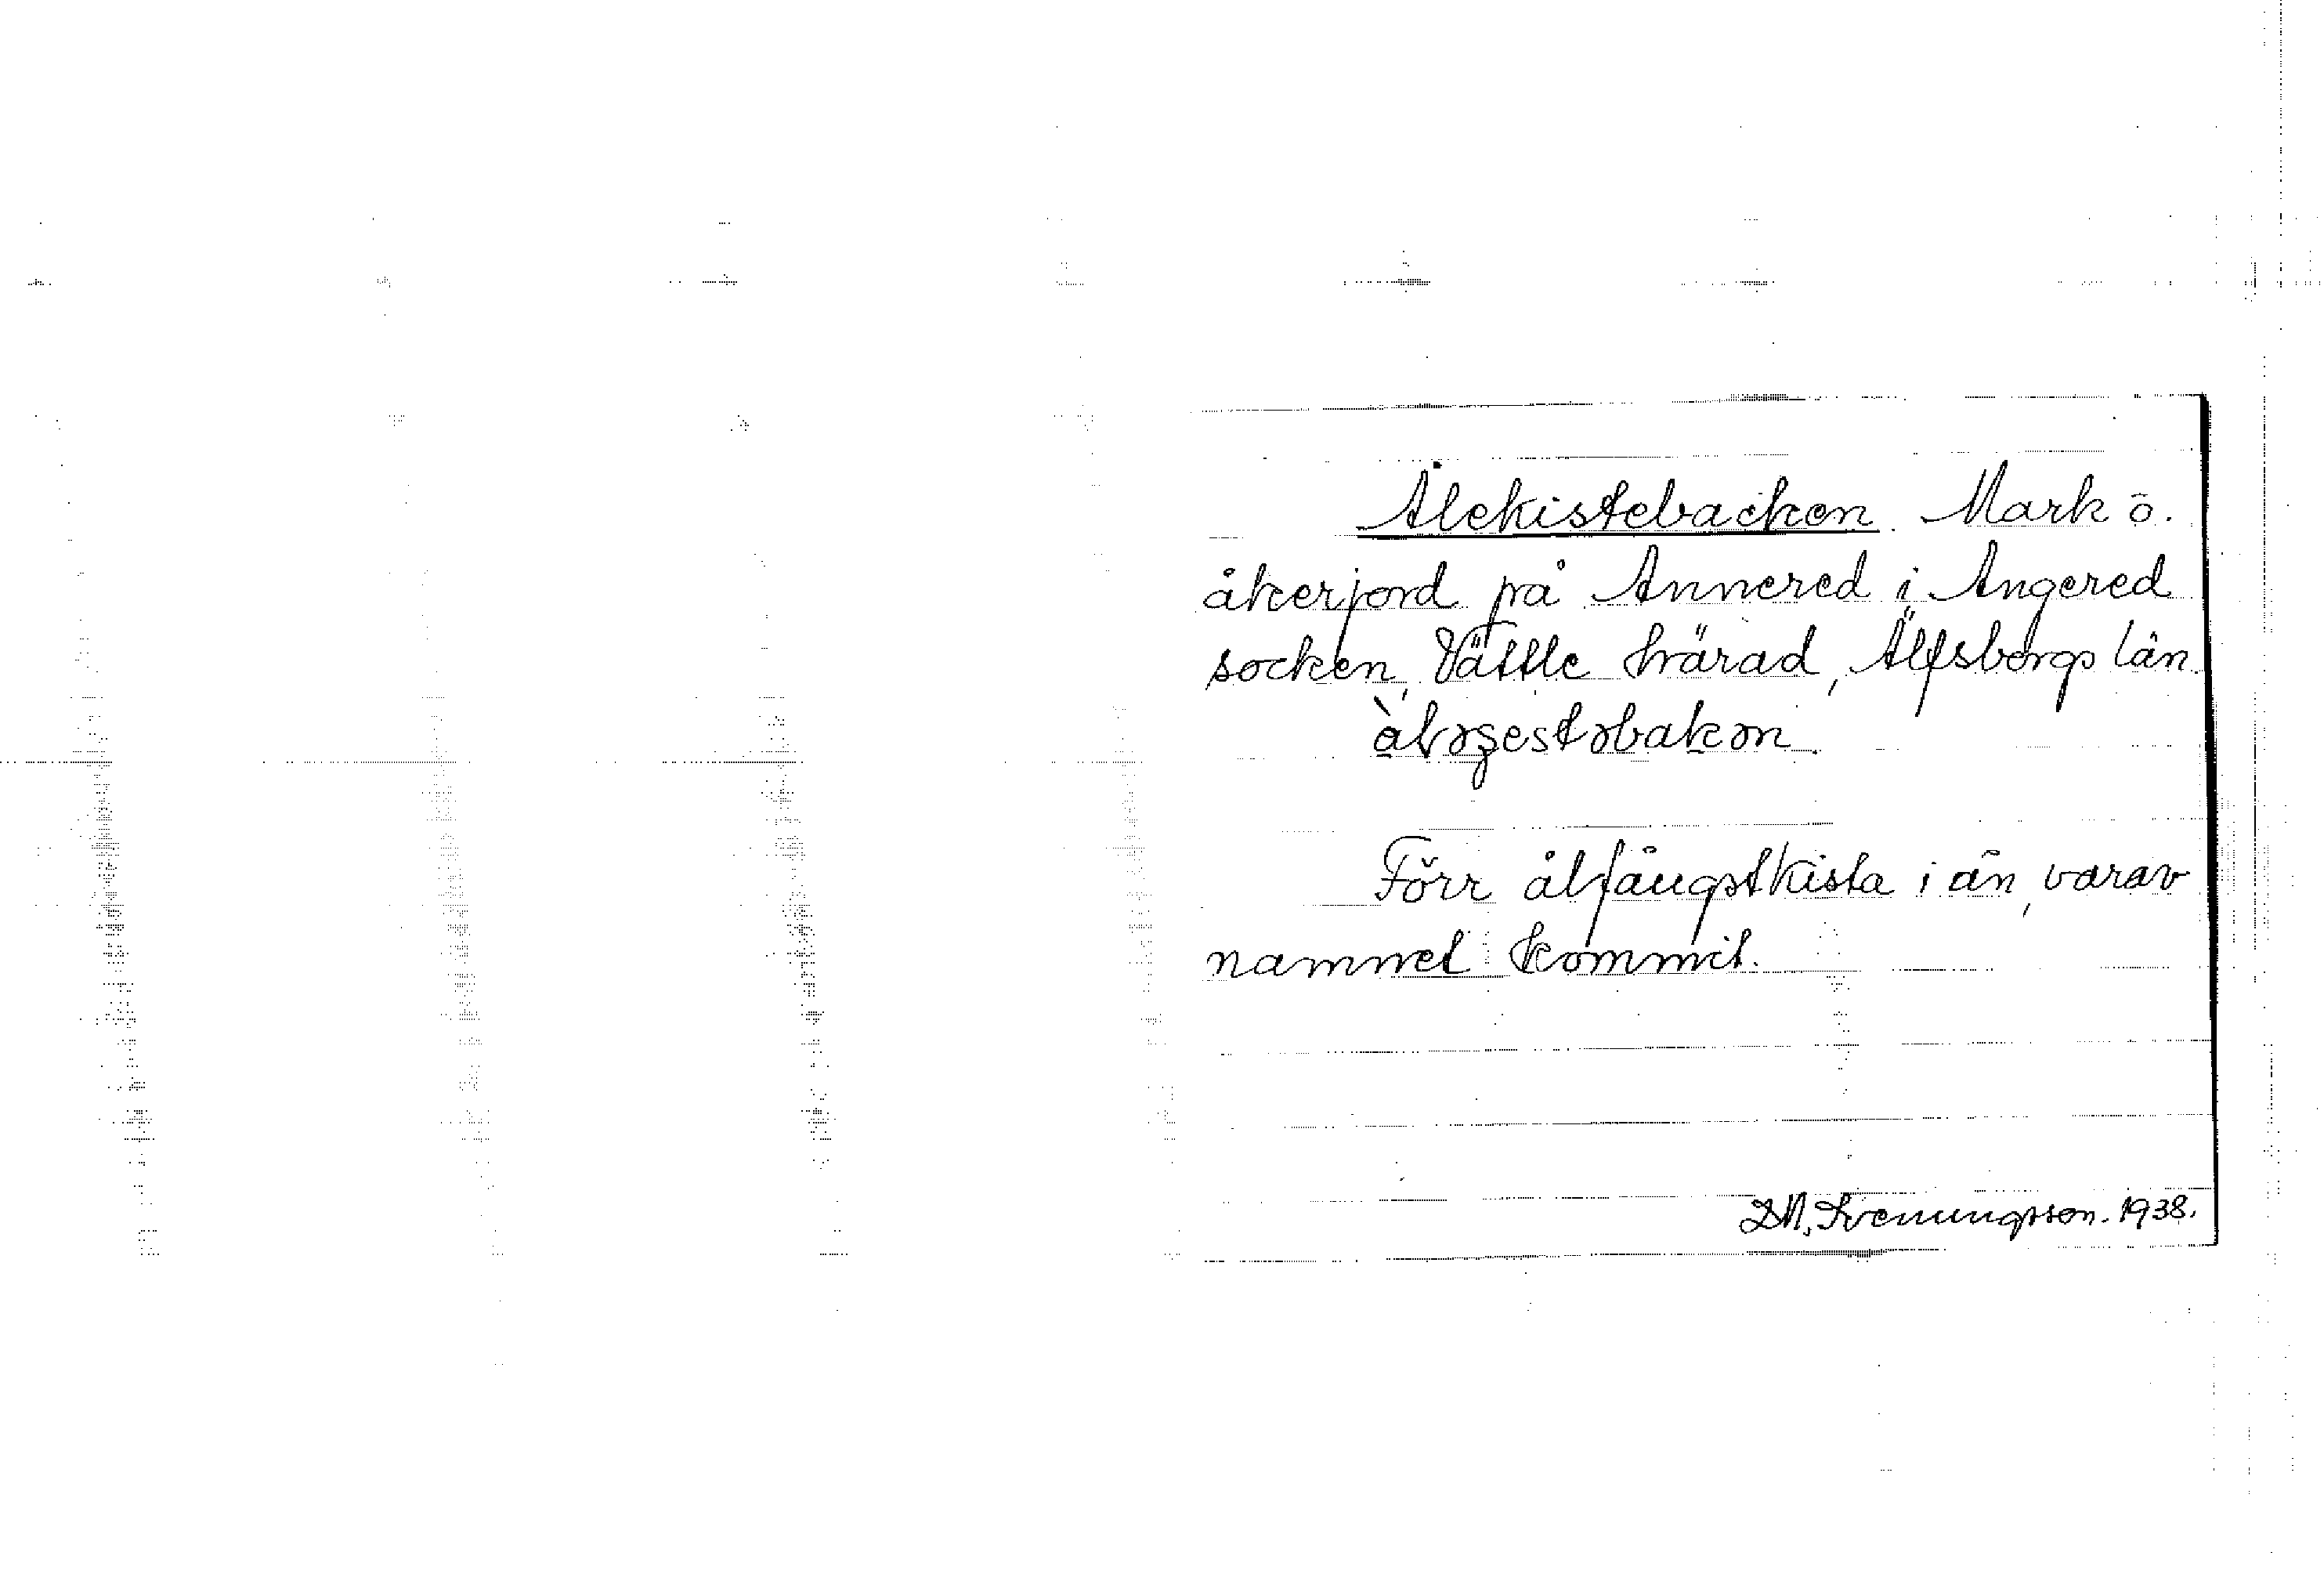 Ålekistebacken. Mark o.
åkerjord på Annered i Angered
socken, Vättle härad, Älfsborgs län.
Förr ålfångstkista i ån, varav
namnet kommit.
D.N. Svenungsson. 1938.